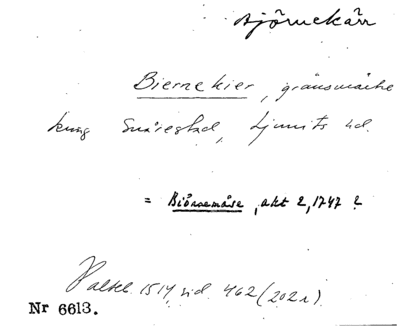 Björnekärr
Biernekier, gränsmärke
kring Snårestad, Ljunits hd.
= Biörnemåse, akt 2, 1747 ?
Palteb. 1514, sid. 462 (202r).
Nr 6613.